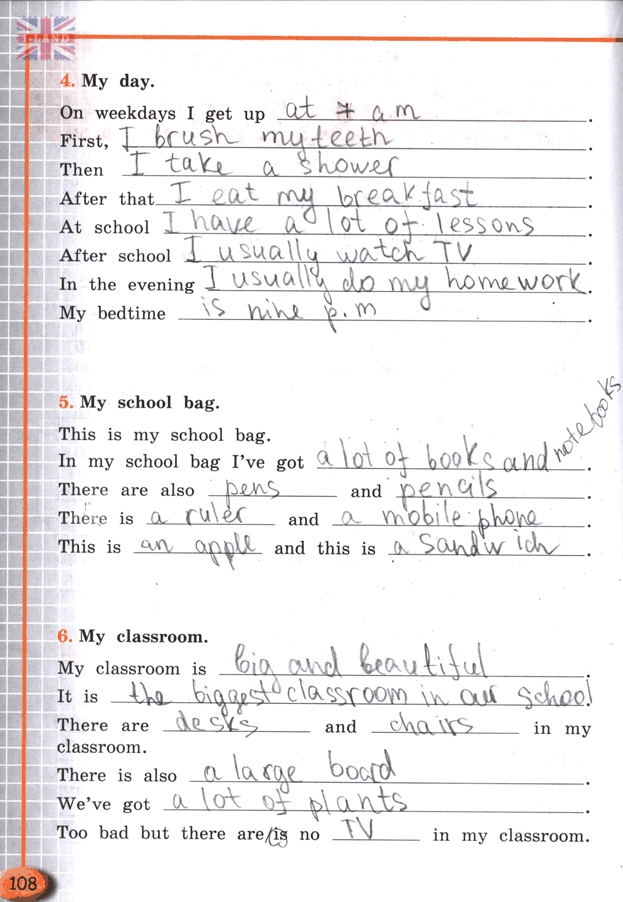 I-LAND
4. My day.
On weekdays I get up at 7 a.m.
First, I brush my teeth
Then I take a shower
After that I eat my breakfast.
At school I have a lot of lessons.
After school I usually watch TV.
In the evening I usually do my homework.
My bedtime is nine p.m.
5. My school bag.
This is my school bag.
In my school bag I've got a lot of books and notebooks.
There are also pens and pencils.
There is a ruler and a mobile phone.
This is an apple and this is a sandwich.
6. My classroom.
My classroom is big and beautiful.
It is the biggest classroom in our school.
There are desks and chairs in my
classroom.
There is also a large board.
We've got a lot of plants.
Too bad but there are/is no TV in my classroom.
108